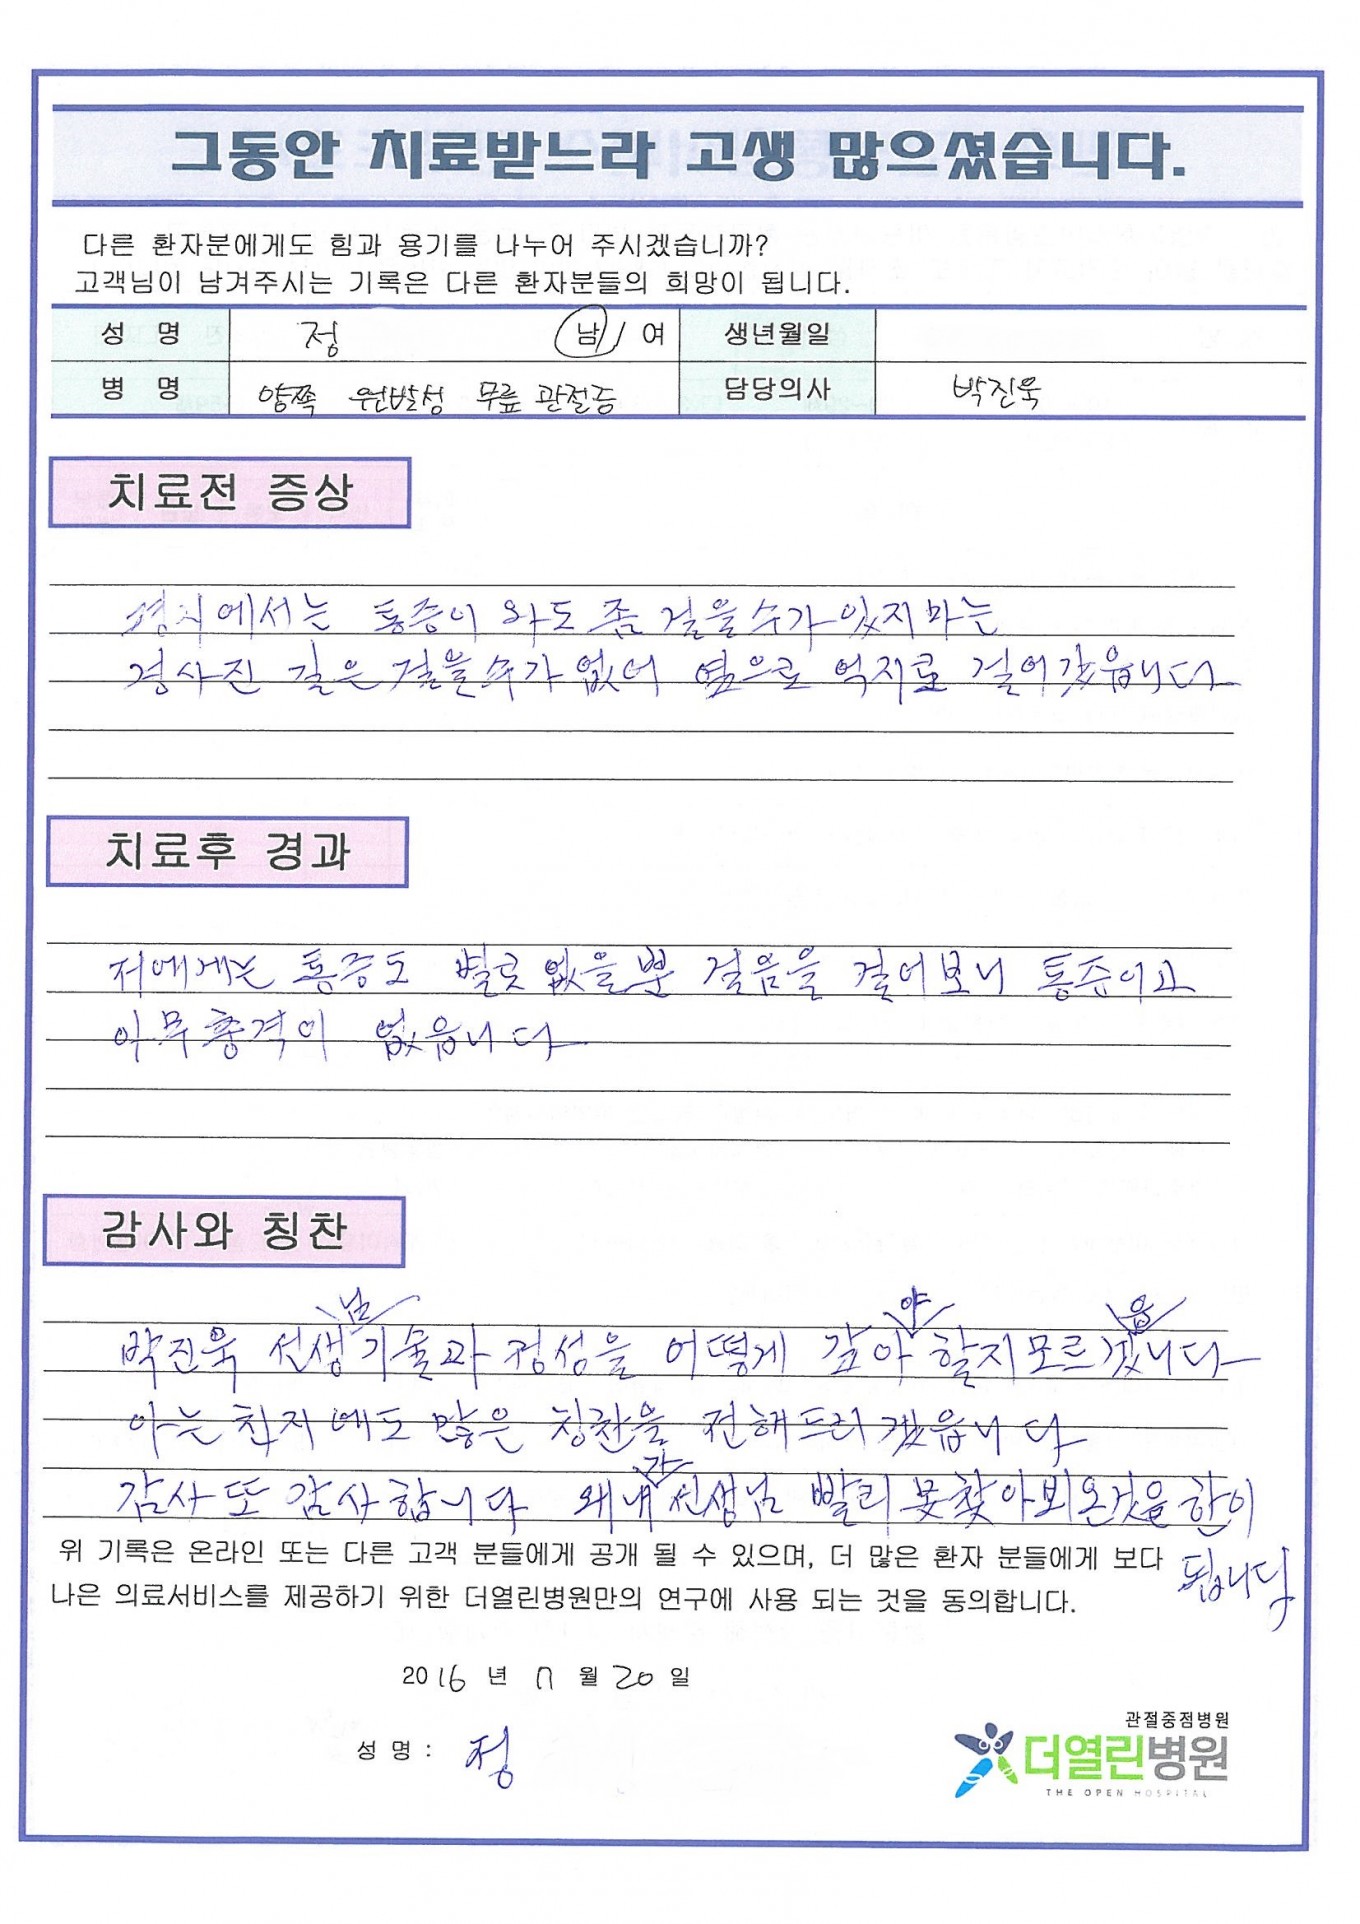 그동안 치료받느라 고생 많으셨습니다.
다른 환자분에게도 힘과 용기를 나누어 주시겠습니까?
고객님이 남겨주시는 기록은 다른 환자분들의 희망이 됩니다.
성 명 정 남 / 여 생년월일
병 명 양쪽 원발성 무릎 관절증 담당의사 박진욱
치료전 증상
평지에서는 통증이 와도 좀 걸을수가 있지마는
경사진 길은 걸을수가 없어 옆으로 억지로 걸어갔읍니다
치료후 경과
저에게는 통증도 별로 없을뿐 걸음을 걸어보니 통증이고
아무충격이 없읍니다
감사와 칭찬
박진욱 선생님 기술과 정성을 어떻게 갚아야 할지모르겠읍니다
아는 친지에도 많은 칭찬을 전해드리겠읍니다
감사 또 감사합니다 왜 내가 선생님 빨리 못찾아뵈온것을 한이
됩니다
위 기록은 온라인 또는 다른 고객 분들에게 공개 될 수 있으며, 더 많은 환자 분들에게 보다
나은 의료서비스를 제공하기 위한 더열린병원만의 연구에 사용 되는 것을 동의합니다.
2016 년 7 월 20 일
성 명 : 정
관절중점병원
더열린병원
THE OPEN HOSPITAL